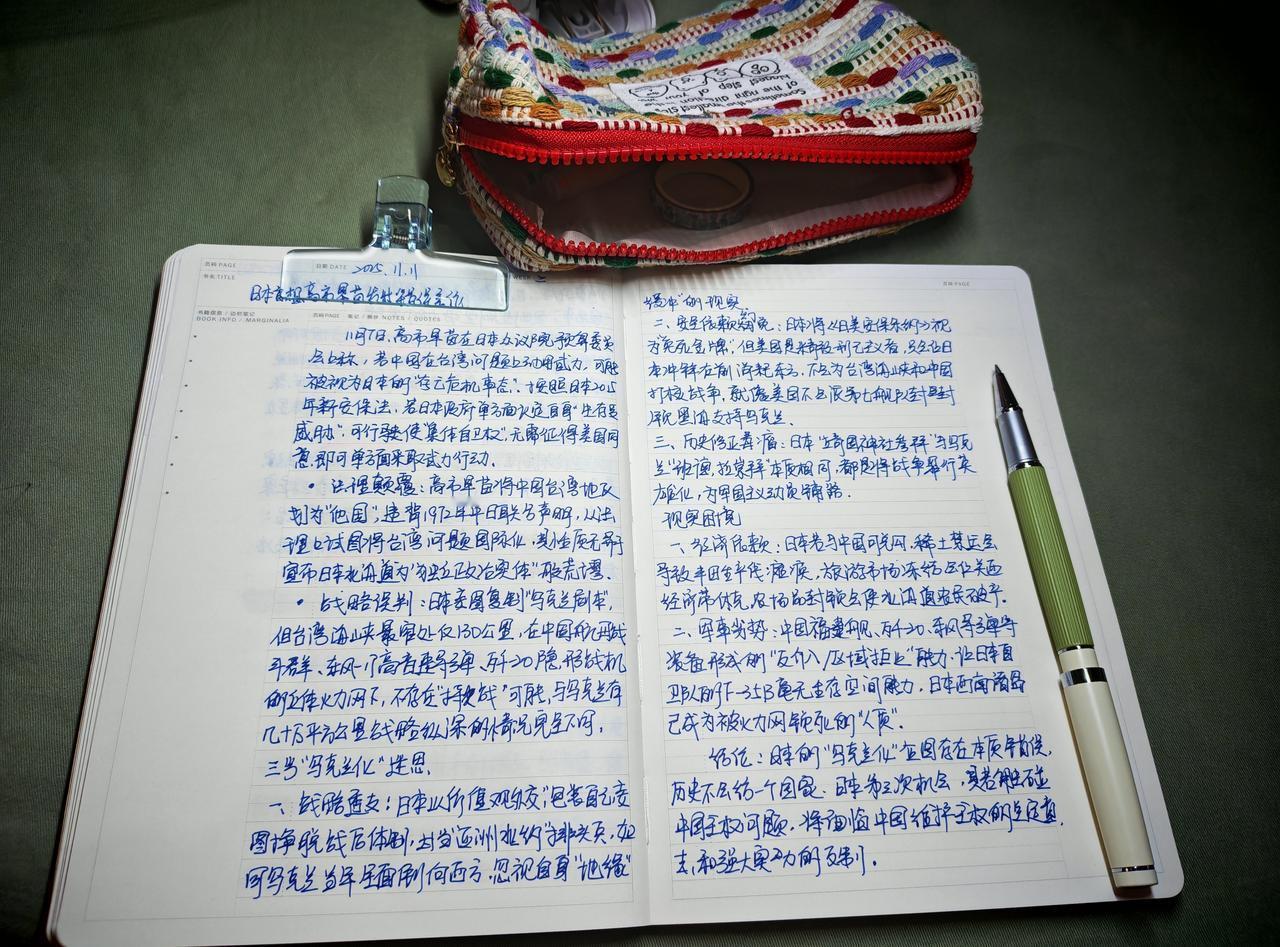 Sometimes the smallest step
in the right direction
biggest step of your
页码 PAGE
日期 DATE 2025.11.11
书名 TITLE
日本首相高市早苗
书籍信息 / 边栏笔记
BOOK.INFO / MARGINALIA
页码 PAGE 笔记 / 摘抄 NOTES / QUOTES
11月7日,高市早苗在日本众议院预算委员
会上称,若中国在台湾问题上动用武力,可能
被视为日本的"存亡危机事态"。按照日本2015
年新安保法,若日本政府单方面认定自身"生存受
威胁",可行驶使"集体自卫权",无需征得美国同
意,即可单方面采取武力行动。
• 法理颠覆:高市早苗将中国台湾地区
划为"他国",违背1972年中日联合声明,从法
理上试图将台湾问题国际化,其性质无异于
宣布日本北海道为"独立政治实体"般荒谬。
• 战略误判:日本妄图复制"乌克兰剧本",
但台湾海峡最窄处仅130公里,在中国航母战
斗群、东风-17高音速导弹、歼-20隐形战机
的立体火力网下,不存在"持久战"可能,与乌克兰有
几十万平方公里战略纵深的情况完全不同。
三当"乌克兰化"迷思
一、战略透支:日本以"价值观外交"包装自己,妄
图挣脱战后体制,充当亚洲北约"排头兵",如
同乌克兰当年全面倒向西方,忽视自身"地缘
页码 PAGE
缓冲"的现实
二、安全依赖幻觉:日本将《日美安保条约》视
为免死金牌,但美国是精致利己主义者,只会让日
本冲锋在前消耗东方,不会为台湾海峡和中国
打核战争,就像美国不会派第七舰队封
锁黑海支持乌克兰。
三、历史修正毒瘤:日本"靖国神社参拜"与乌克
兰"班德拉崇拜"本质相同,都是将战争罪行英
雄化,为军国主义动员铺路。
现实困境
一、经济依赖:日本若与中国可能网,稀土禁运会
导致丰田生产线瘫痪,旅游市场冻结会让关西
经济带休克,农场品封锁会使北海道农民破产。
二、军事劣势:中国福建舰、歼-20、东风导弹等
装备形成的"反介入/区域拒止"能力,让日本自
卫队的F-35B毫无生存空间能力,日本西南诸岛
已成为被火力网锁死的"人质"。
结论:日本的"乌克兰化"企图存在本质错误,
历史不会给一个国家第三次机会,若触碰
中国主权问题,将面临中国维护主权的坚定意
志和强大实力的反制。